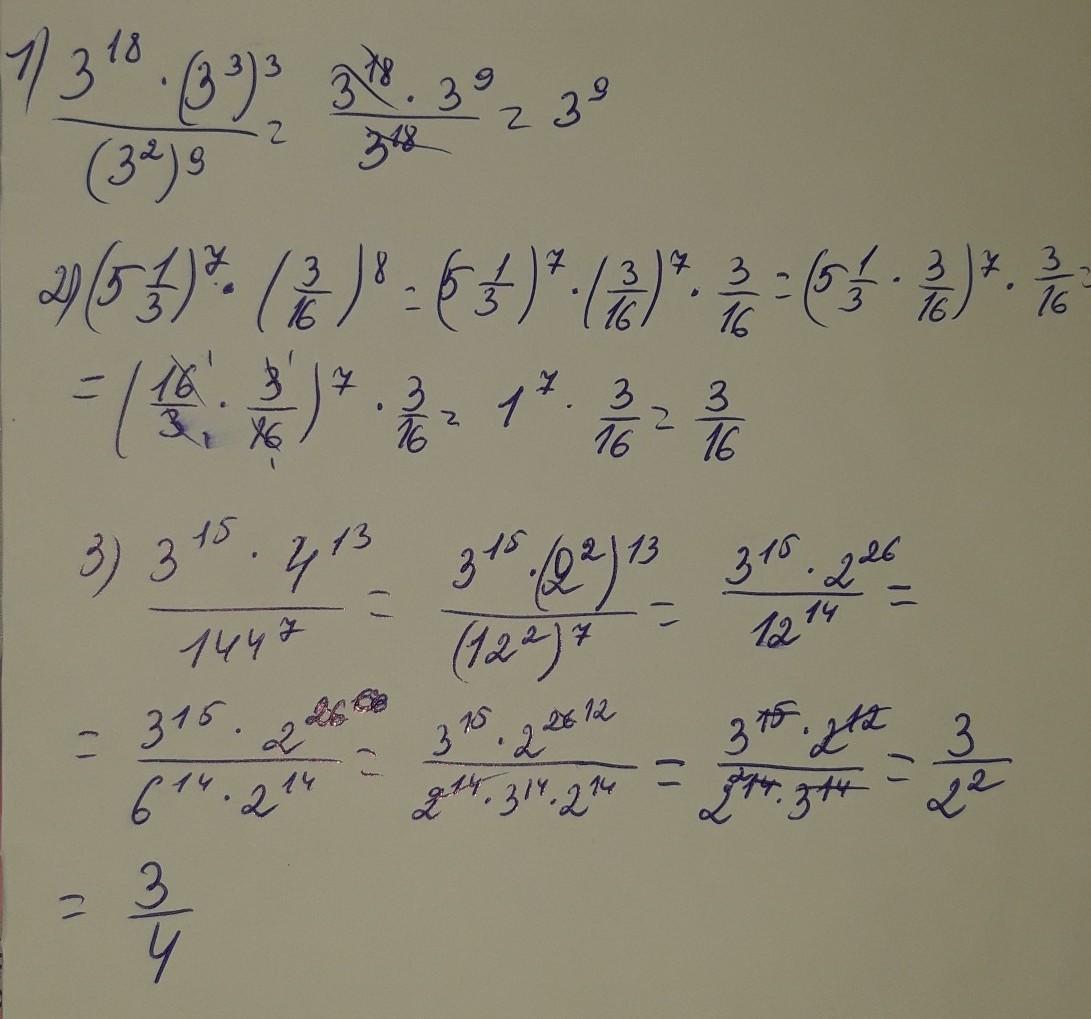 1) (3^18 · (3^3)^3)/((3^2)^9) = (3^18 · 3^9)/(3^18) = 3^9
2) (5 1/3)^7 · (3/16)^8 = (5 1/3)^7 · (3/16)^7 · 3/16 = (5 1/3 · 3/16)^7 · 3/16 =
= (16/3 · 3/16)^7 · 3/16 = 1^7 · 3/16 = 3/16
3) (3^15 · 4^13)/(144^7) = (3^15 · (2^2)^13)/((12^2)^7) = (3^15 · 2^26)/(12^14) =
= (3^15 · 2^26)/(6^14 · 2^14) = (3^15 · 2^26 12)/(2^14 · 3^14 · 2^14) = (3^15 · 2^12)/(2^14 · 3^14) = 3/2^2
= 3/4